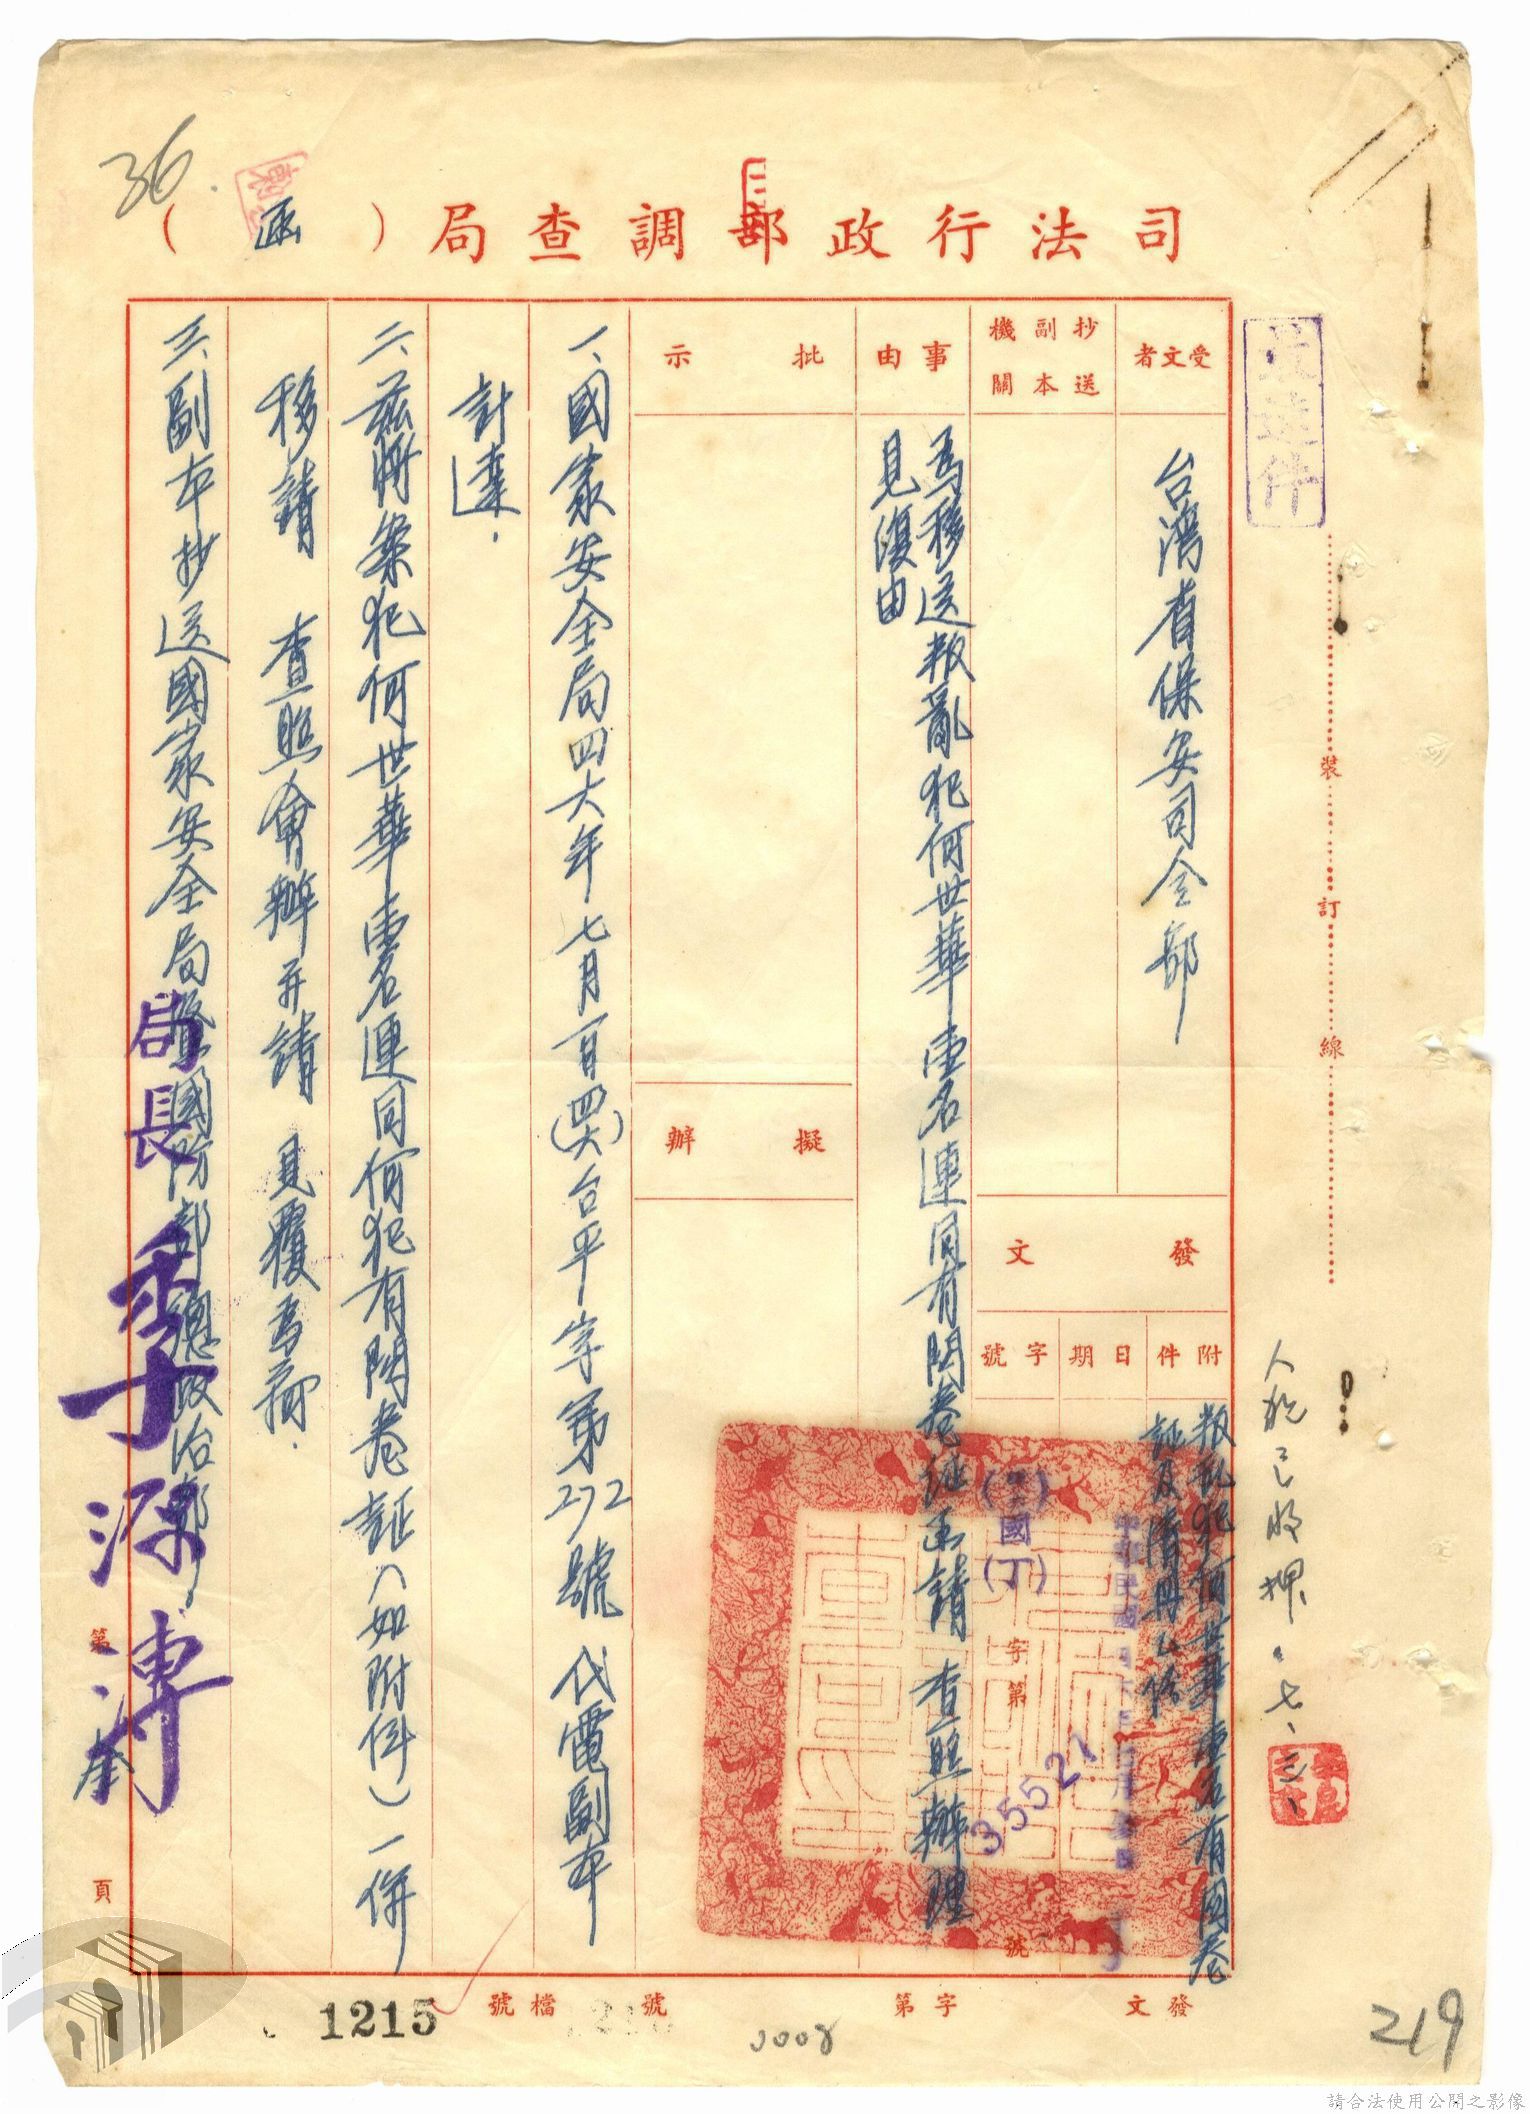 36.
司法行政部調查局（函）
最速件
受文者
台湾省保安司令部
抄送副本機關
事由
為移送叛亂犯何世華壹名連同有関卷証函請 查照辦理
見復由
批示
擬辦
發文
附件
叛亂犯何世華壹名有関卷
証及清冊乙份
日期
中華民國
字號
國
(丁)
字第
35521
號
一、國家安全局四六年七月一日(四六)台平字第272號代電副本
計達.
二、茲將案犯何世華壹名連同何犯有関卷証（如附件）一併
移請 查照會辦并請見覆為荷.
三、副本抄送國家安全局暨國防部總政治部.
局長 季源溥
裝
訂
線
人犯已收押.七、三、
第
頁
發文
字第
號
檔號
1215
3008
219
請合法使用公開之影像